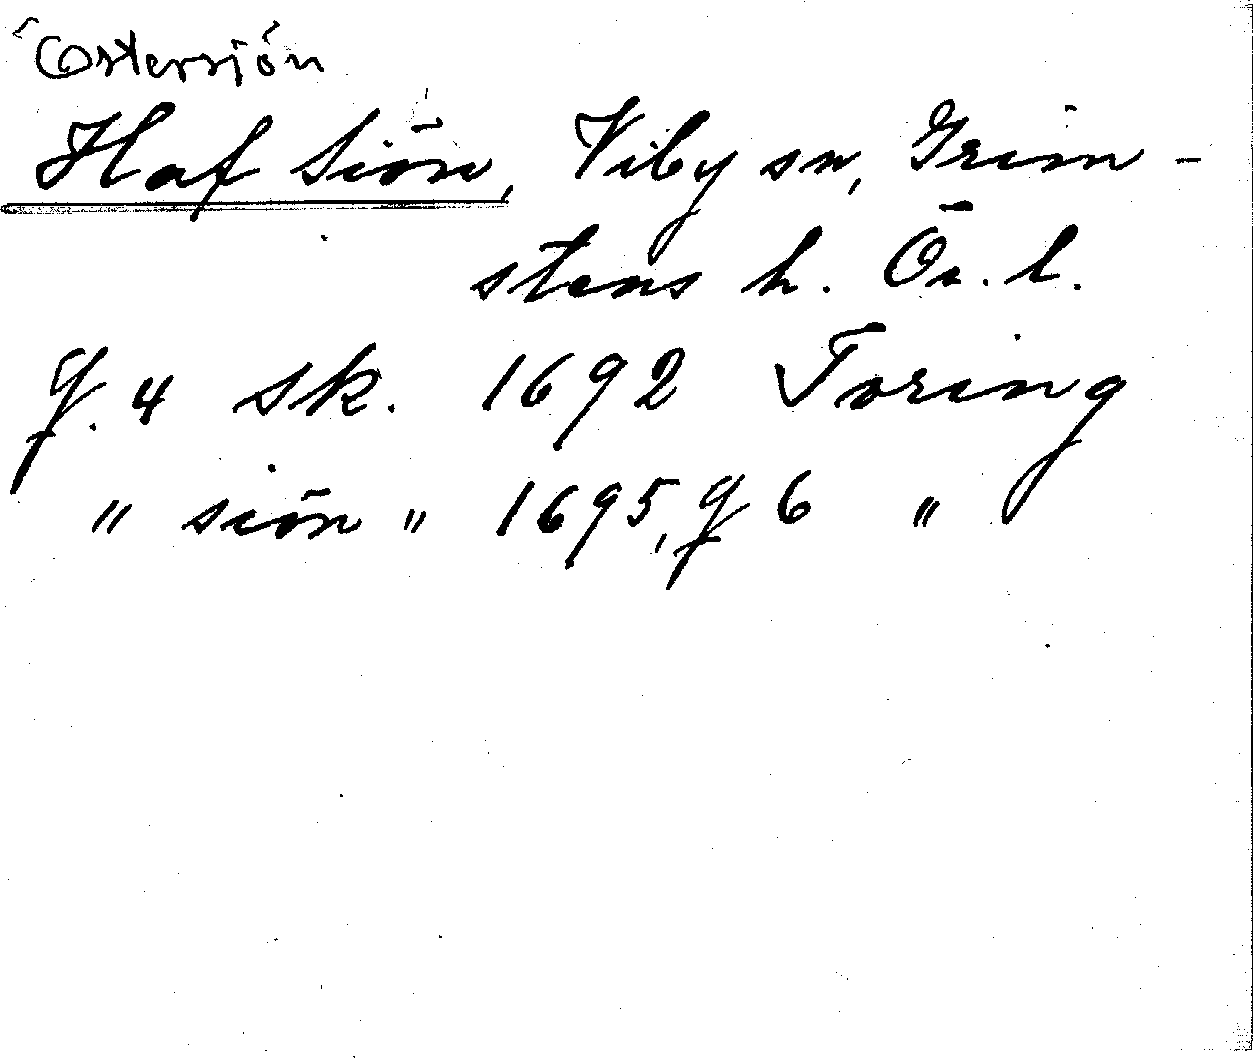 Östersjön
Haf siön, Viby sn, Grim-
stens h. Ör. l.
J. 4 sk. 1692 Toring
" siön " 1695, J 6 "